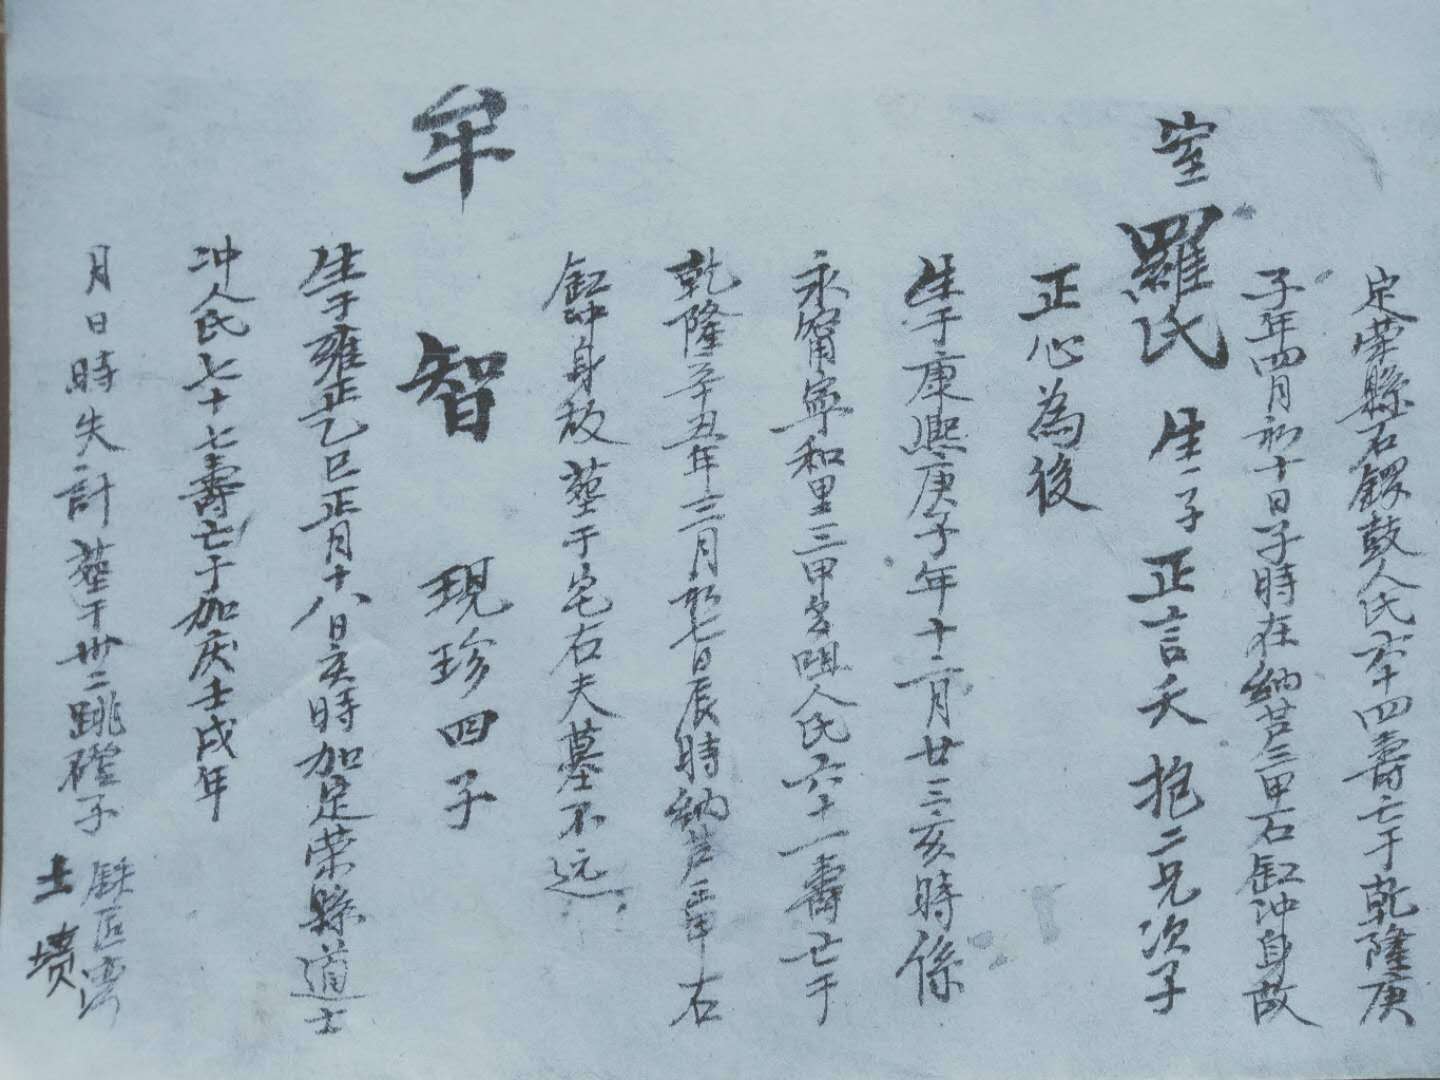 定荣縣石鑼鼓人氏六十四壽亡于乾隆庚
子年四月初十日子時在納芦三甲石缸冲身故
室羅氏 生一子正言夭抱二兄次子
正心為後
生于康熙庚子年十二月廿三亥時係
永甯寧和里三甲咀人氏六十一壽亡于
乾隆辛五年三月初七日辰時納芦三甲石
缸冲身故 塟于宅右夫墓不远
牟智 現珍四子
生于雍正乙巳正月十八日亥時加定荣縣道士
冲人氏七十七壽亡于加庆壬戌年
月日時失計塟于卅二跳磴子
銕匠湾
土坟